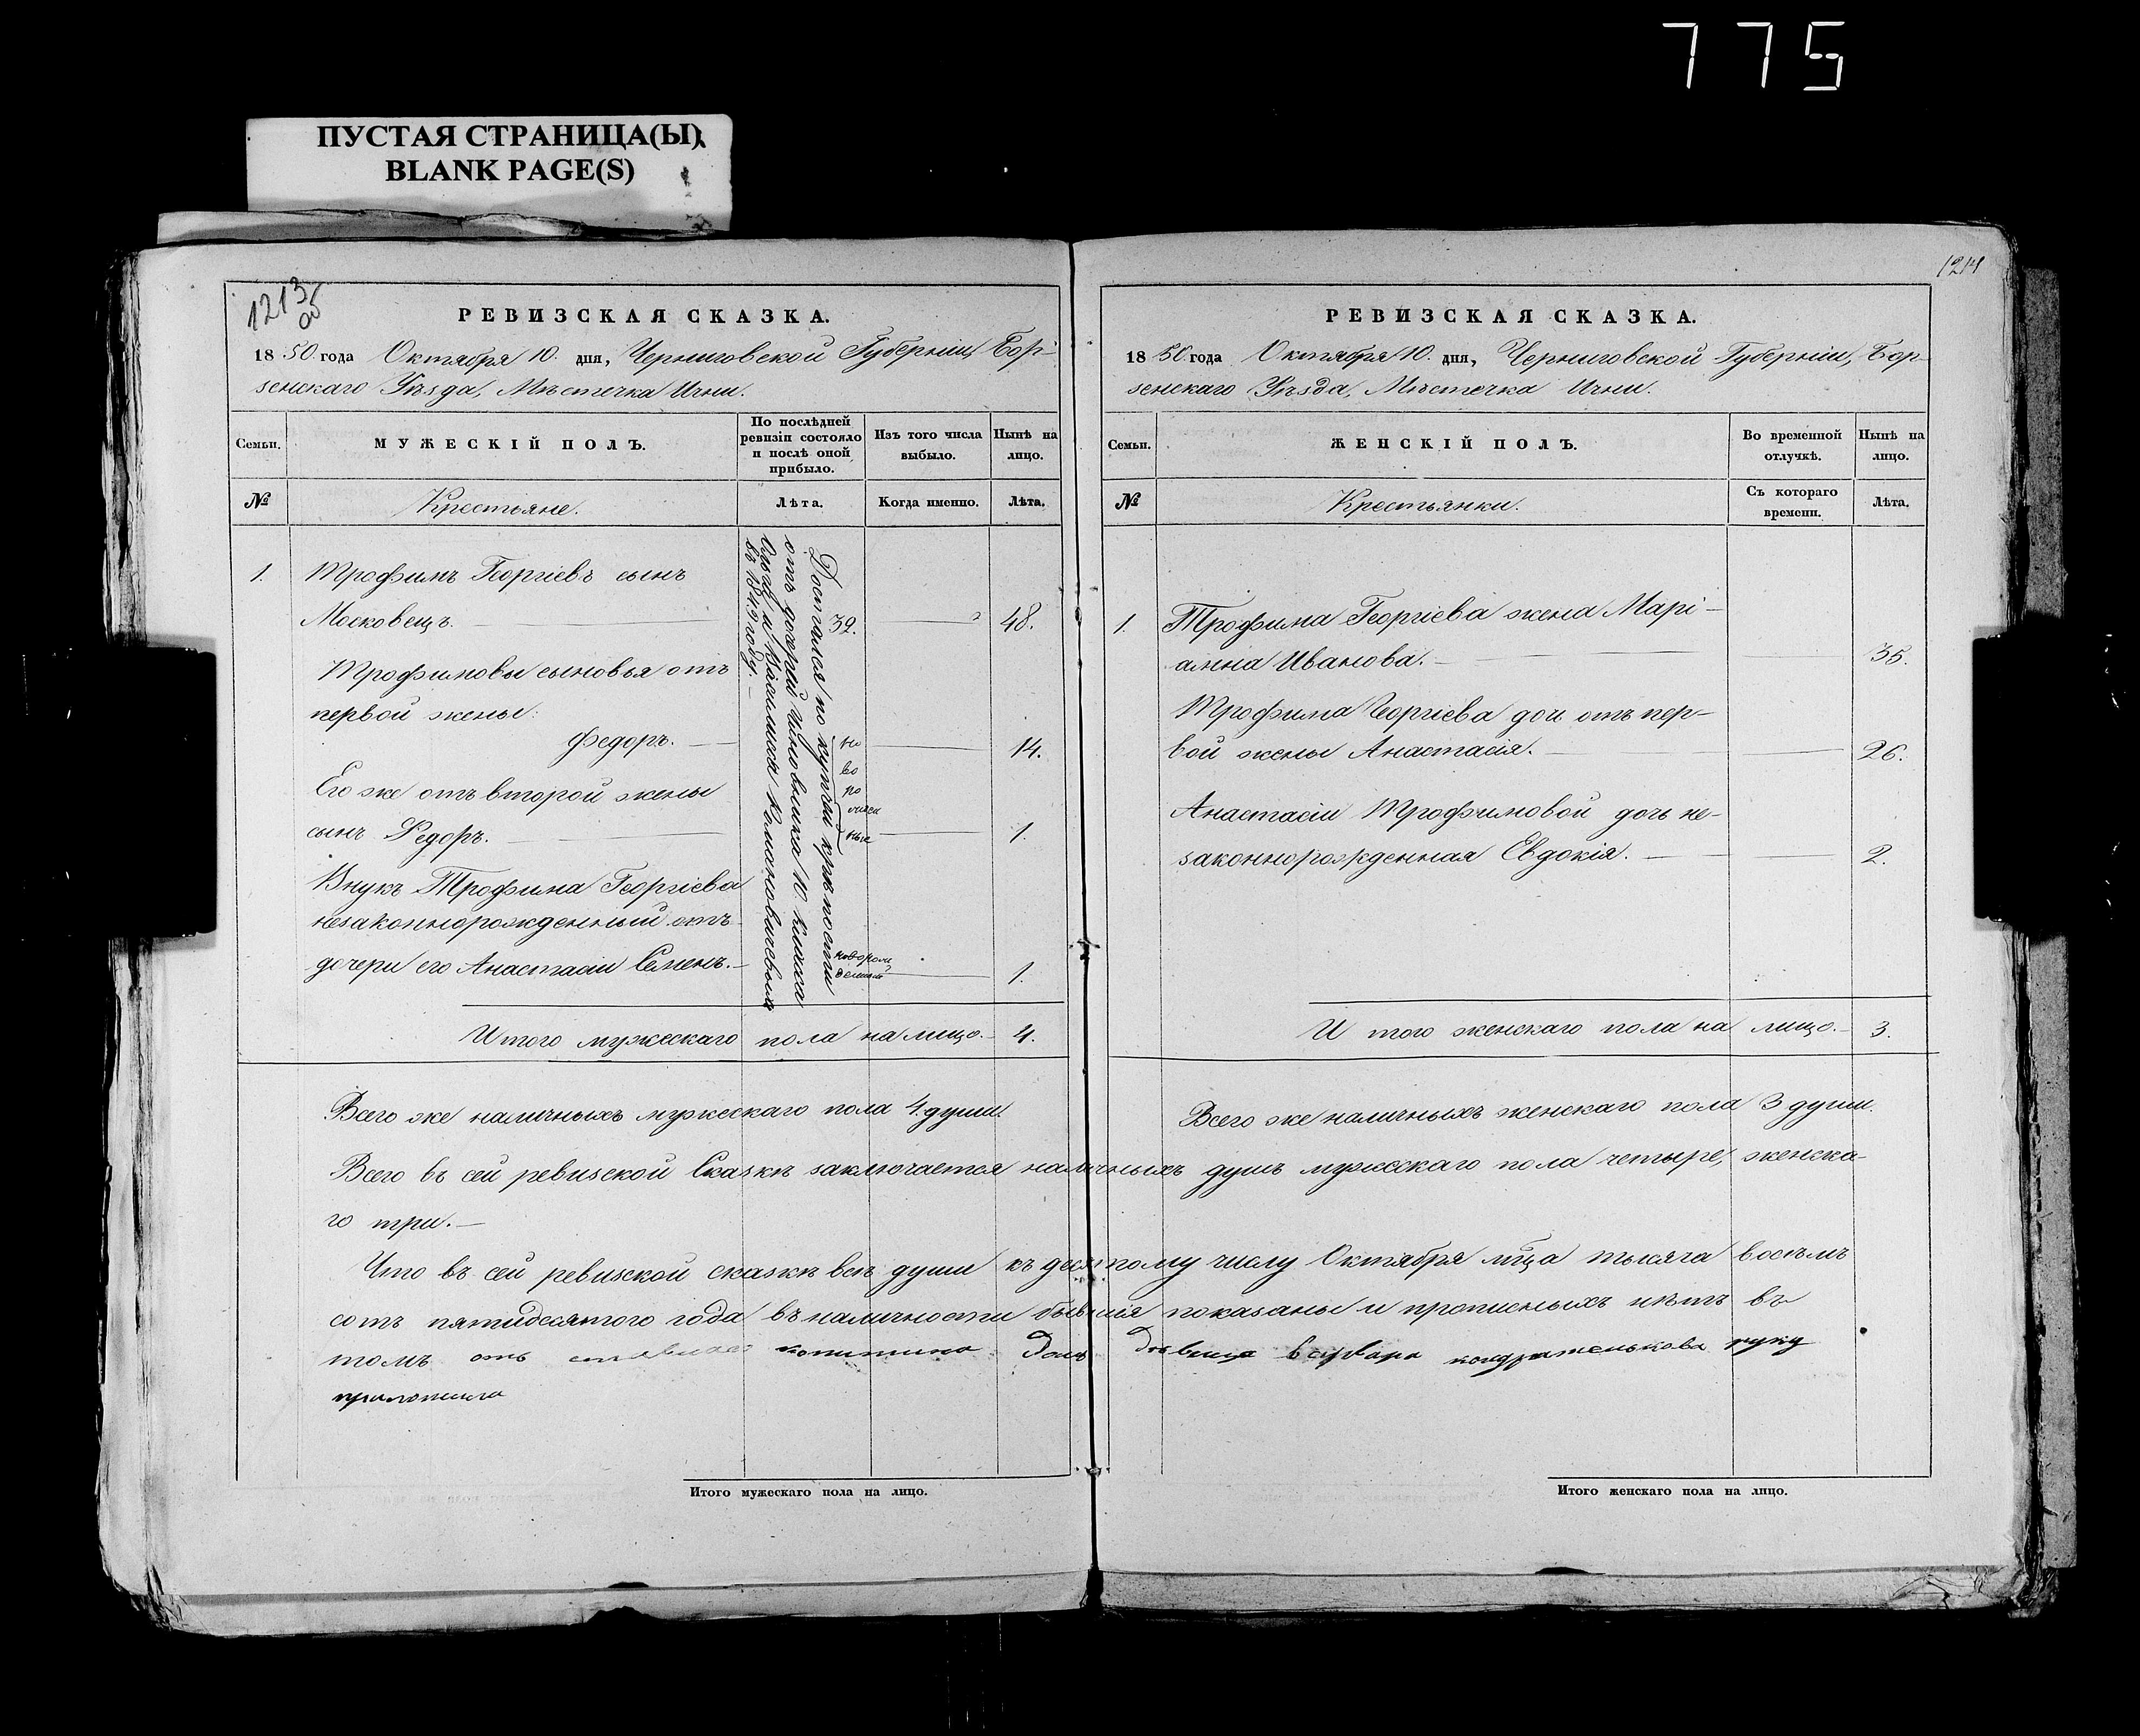 775
ПУСТАЯ СТРАНИЦА(Ы)
BLANK PAGE(S)
1213
об
РЕВИЗСКАЯ СКАЗКА.
1850 года Октября 10. дня, Черниговской Губерніи, Бор-
зенскаго Уѣзда, Мѣстечка Ични.
Семьи.
МУЖЕСКІЙ ПОЛЪ.
По послѣдней ревизіи состояло и послѣ оной прибыло.
Изъ того числа выбыло.
Нынѣ на лицо.
№
Крестьяне.
Лѣта.
Когда именно.
Лѣта.
1. Трофимъ Георгіевъ сынъ
Московецъ. 32. 48.
Трофимовы сыновья отъ
первой жены:
Федоръ. 14.
Его же отъ второй жены
сынъ Федоръ. 1.
Внукъ Трофима Георгіева
незаконнорожденный отъ
дочери его Анастасіи Семенъ. 1.
Достался по купчей крѣпости
отъ дочерей Чиновника
въ 1849 году.
новорож
денный
Итого мужескаго пола на лицо. 4.
Всего же наличныхъ мужескаго пола 4 души.
1214
РЕВИЗСКАЯ СКАЗКА.
1850 года Октября 10. дня, Черниговской Губерніи, Бор-
зенскаго Уѣзда, Мѣстечка Ични.
Семьи.
ЖЕНСКІЙ ПОЛЪ.
Во временной отлучкѣ.
Нынѣ на лицо.
№
Крестьянки.
Съ котораго времени.
Лѣта.
1. Трофима Георгіева жена Марі-
анна Иванова. 35.
Трофима Георгіева дочь отъ пер-
вой жены Анастасія. 26.
Анастасіи Трофимовой дочь не-
законнорожденная Евдокія. 2.
И того женскаго пола на лицо. 3.
Всего же наличныхъ женскаго пола 3 души.
Всего въ сей ревизской Сказкѣ заключается наличныхъ душъ мужескаго пола четыре, женска-
го три.
Что въ сей ревизской сказкѣ всѣ души къ десятому числу Октября мца тысяча восемъ
сотъ пятидесятого года въ наличности бывшія показаны и прописныхъ нѣтъ въ
томъ девица варвара кондратенькова руку
приложила
Итого мужескаго пола на лицо.
Итого женскаго пола на лицо.